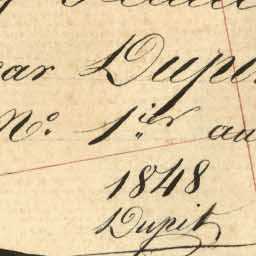 car Dupit
No. 1ier au
1848
Dupit